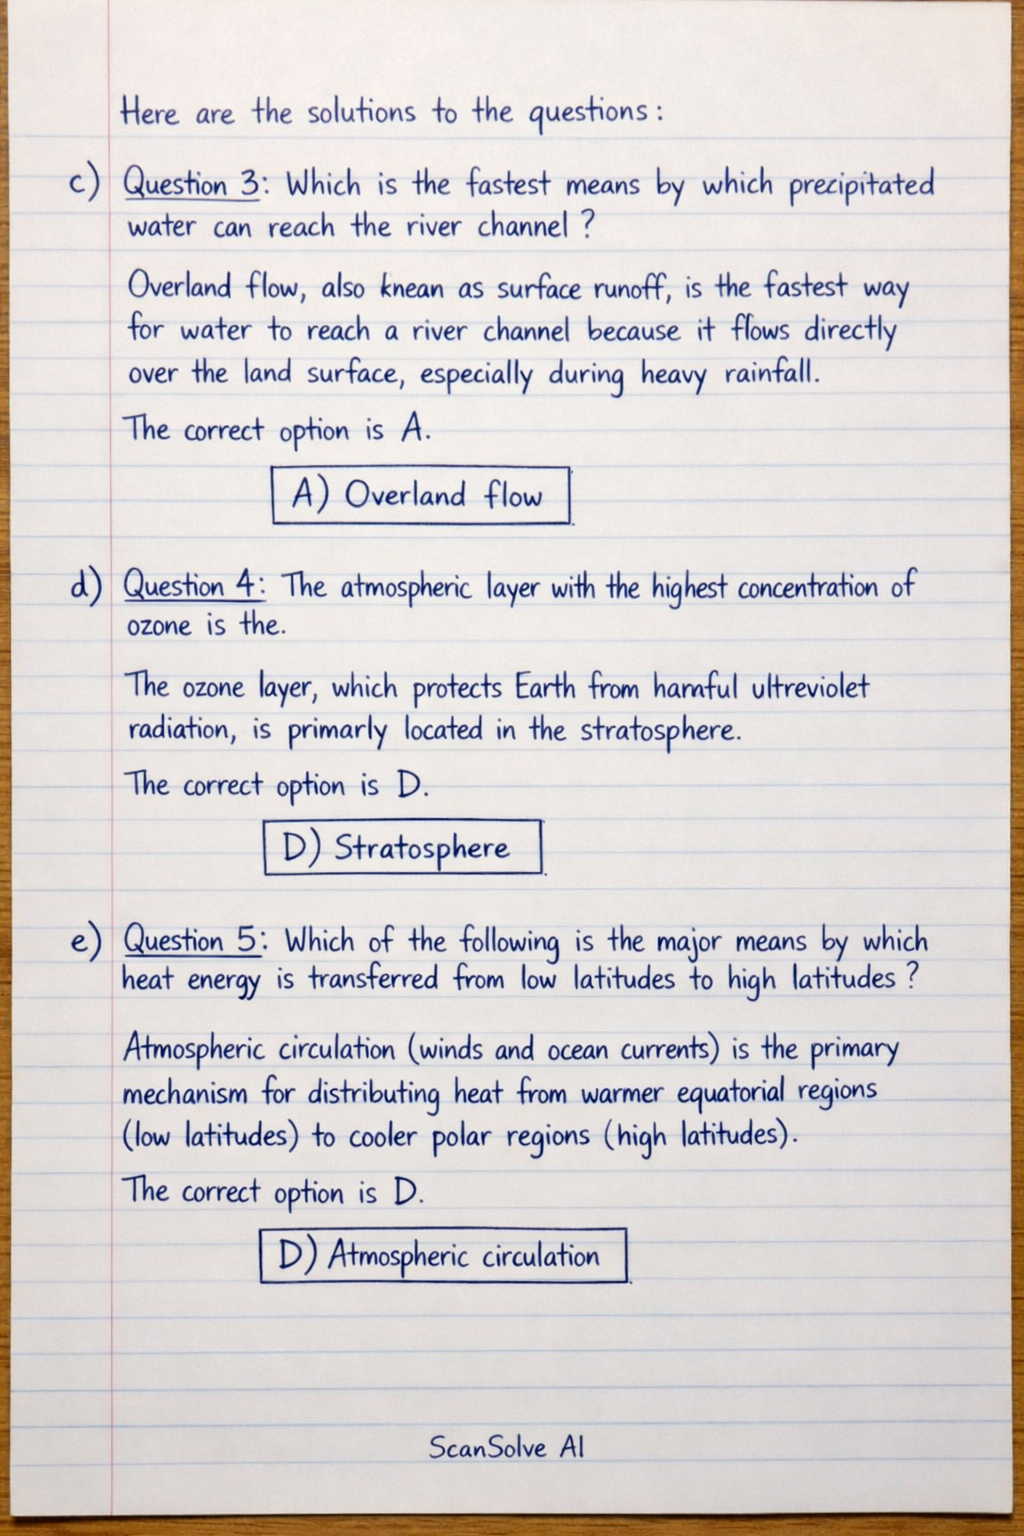 Here are the solutions to the questions:
c) Question 3: Which is the fastest means by which precipitated
water can reach the river channel?
Overland flow, also knean as surface runoff, is the fastest way
for water to reach a river channel because it flows directly
over the land surface, especially during heavy rainfall.
The correct option is A.
A) Overland flow
d) Question 4: The atmospheric layer with the highest concentration of
ozone is the.
The ozone layer, which protects Earth from harnful ultreviolet
radiation, is primarly located in the stratosphere.
The correct option is D.
D) Stratosphere
e) Question 5: Which of the following is the major means by which
heat energy is transferred from low latitudes to high latitudes?
Atmospheric circulation (winds and ocean currents) is the primary
mechanism for distributing heat from warmer equatorial regions
(low latitudes) to cooler polar regions (high latitudes).
The correct option is D.
D) Atmospheric circulation
ScanSolve AI